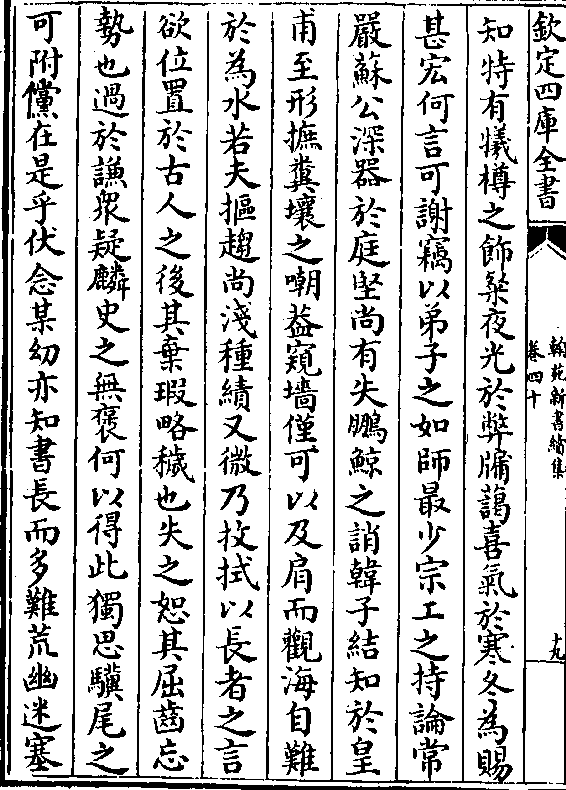 欽定四庫全書
翰苑新書續集
卷四十
十九
知特有犧樽之飾粲夜光於弊牖藹喜氣於寒冬為賜
甚宏何言可謝竊以弟子之如師最少宗工之持論常
嚴蘇公深器於庭堅尚有失鵬鯨之誚韓子結知於皇
甫至形摭糞壤之嘲葢窺墻僅可以及肩而觀海自難
於為水若夫摳趨尚淺種績又微乃抆拭以長者之言
欲位置於古人之後其棄瑕略穢也失之恕其屈齒忘
勢也過於謙衆疑麟史之無褒何以得此獨思驥尾之
可附儻在是乎伏念某幼亦知書長而多難荒幽迷塞